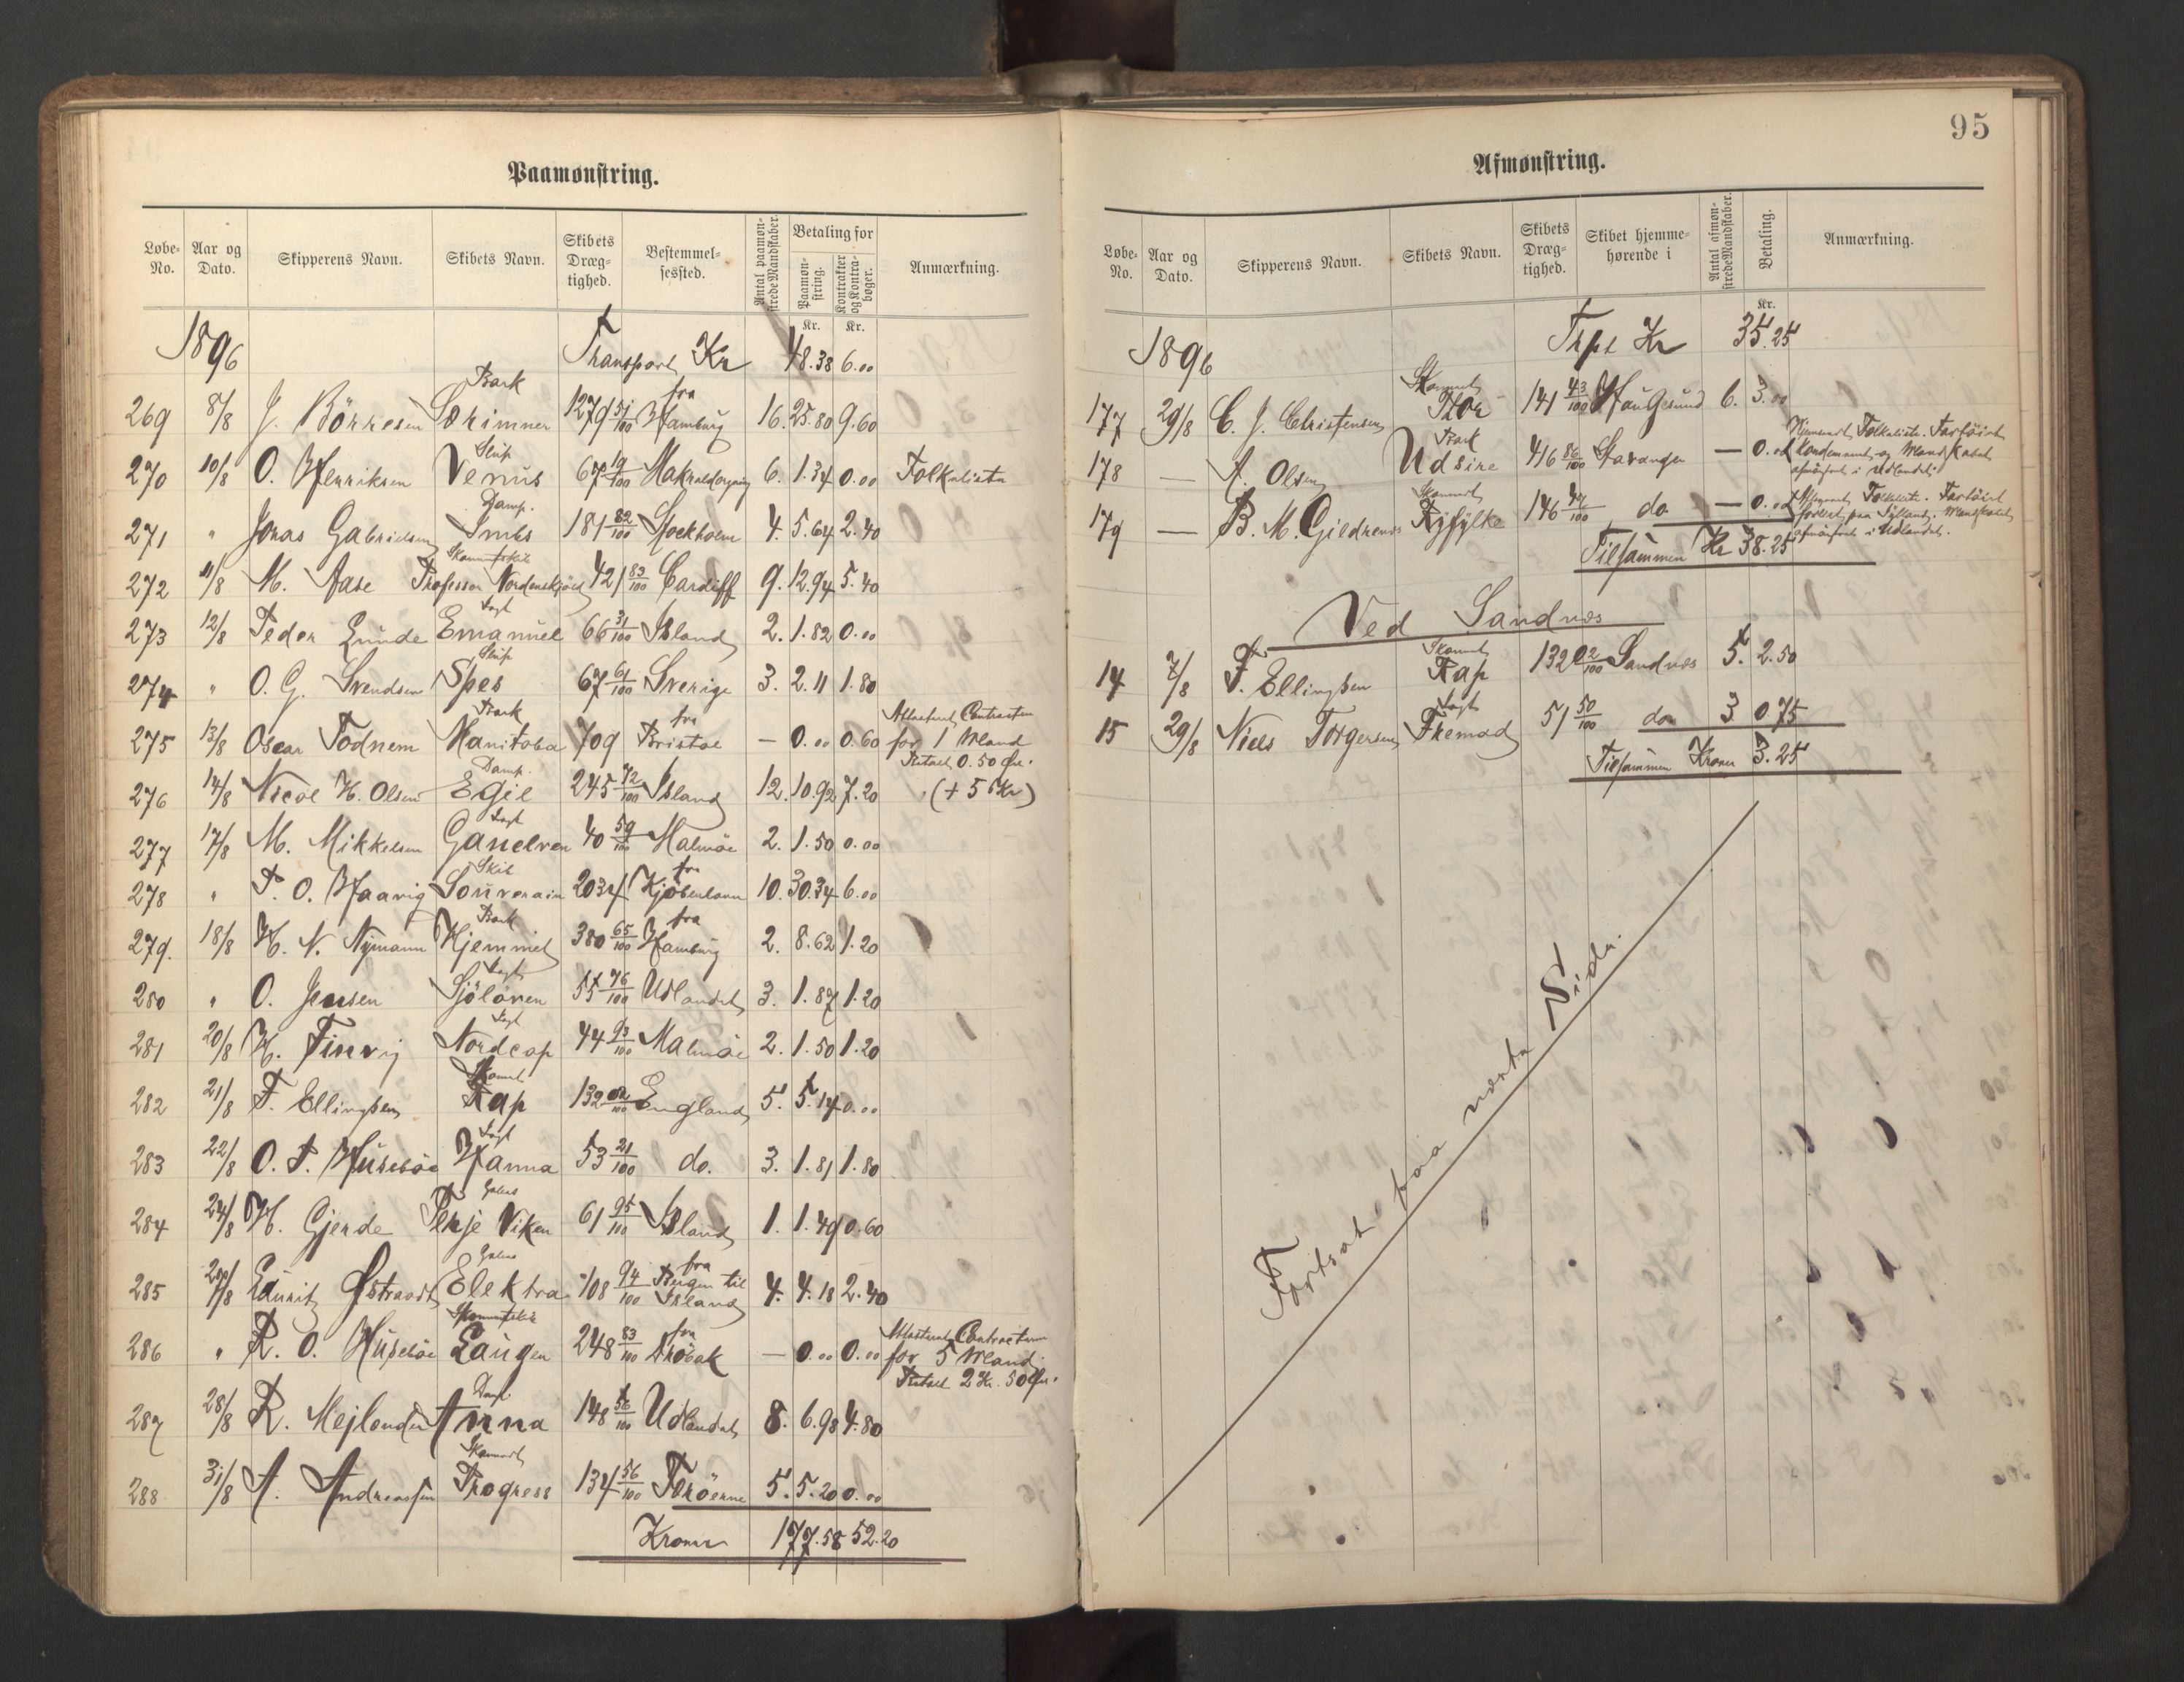 95
Paamønstring.
Løbe-No. Aar og Dato. Skipperens Navn. Skibets Navn. Skibets Dræg-tighed. Bestemmel-sessted. Antal paamøn-strede Mandskaber. Betaling for Paamøn-string. Kontrakter og Kontra-bøger. Anmærkning.
Kr. Kr.
1896 Transport Kr 48.38 6.00
269 8/8 J. Börresen Bark Særimner 1279 51/100 fra Hamburg 16. 25.80 9.60
270 10/8 O. Henriksen Slup Venus 67 19/100 6. 1.34 0.00 Folkeliste
271 " Jonas Gabrielsen Damp. 181 82/100 Stockholm 4. 5.64 2.40
272 11/8 M. Aase Skonnertskib Professor Nordenskjöld 421 83/100 Cardiff 9. 12.94 5.40
273 12/8 Peder Lunde Jagt Emanuel 66 31/100 Island 2. 1.82 0.00
274 " O. G. Svendsen Slup Spes 67 61/100 Sverige 3. 2.11 1.80
275 13/8 Oscar Fodnem Bark Manitoba 709 fra Bristol — 0.00 0.60 Attesteret Contracten for 1 Mand Betalt 0.50 Øre.
276 14/8 Nicol H. Olsen Damp. Egil 245 72/100 Island 12. 10.92 7.20 (+ 5 Kr)
277 17/8 M. Mikkelsen Jagt Ganelven 40 59/100 Malmöe 2. 1.50 0.00
278 " T. O. Haavig Skib Souverain 2034 fra Kjöbenhavn 10. 30.34 6.00
279. 18/8 H. N. Nymann Bark Hjemmet 380 65/100 fra Hamburg 2. 8.62 1.20
280 " O. Jensen Jagt Sjöloven 55 76/100 Udlandet 3. 1.87 1.20
281 20/8 H. Finvig Jagt Nordcap 44 93/100 Malmöe 2. 1.50 1.20
282 21/8 F. Ellingsen Skonnert Rap 132 02/100 England 5. 5.14 0.00
283 22/8 O. T. Huseböe Jagt Hanna 53 21/100 do. 3. 1.81 1.80
284 24/8 H. Gjerde Galeas Terje Viken 61 95/100 Island 1. 1.49 0.60
285 Lauritz Østraadt Galeas Elektra 108 94/100 fra Bergen til Island 4. 4.18 2.40
286 " R. O. Huseböe Skonnertskib Laugen 248 83/100 fra Dröbak — 0.00 0.00 Attesteret Contracterne for 5 Mand. Betalt 2 Kr. 50 Øre.
287 28/8 R. Mejlænder Damp Anna 148 56/100 Udlandet 8. 6.98 4.80
288 31/8 A. Andreassen Skonnert Progress 134 56/100 Færöerne 5. 5.20 0.00
Kroner 177.58 52.20
Afmønstring.
Løbe-No. Aar og Dato. Skipperens Navn. Skibets Navn. Skibets Dræg-tighed. Skibet hjemme-hørende i Antal afmøn-strede Mandskaber. Betaling. Anmærkning.
Kr.
1896 Trpt Kr 35.25
177 29/8 C. J. Christensen Skonnert Thor 141 43/100 Haugesund 6. 3.00
178 — A. Olsen Bark Udsire 416 86/100 Stavanger — 0.00 Hjemsendt Folkeliste. Fartöiet kondemneret og Mandskabet afmönstret i Udlandet.
179 — B. M. Gjeldrenes Skonnert Ryfylke 146 do — 0.00 Folkeliste. Fartöiet forlist paa Jylland. Mandskabet afmönstret i Udlandet.
Tilsammen Kr 38.25
Ved Sandnes
14 7/8 F. Ellingsen Skonnert Rap 132 02/100 Sandnes 5. 2.50
15 29/8 Niels Torgersen Jagt Fremad 51 50/100 do 3 0 75
Tilsammen Kroner 3.25
Fortsat paa næste Side.